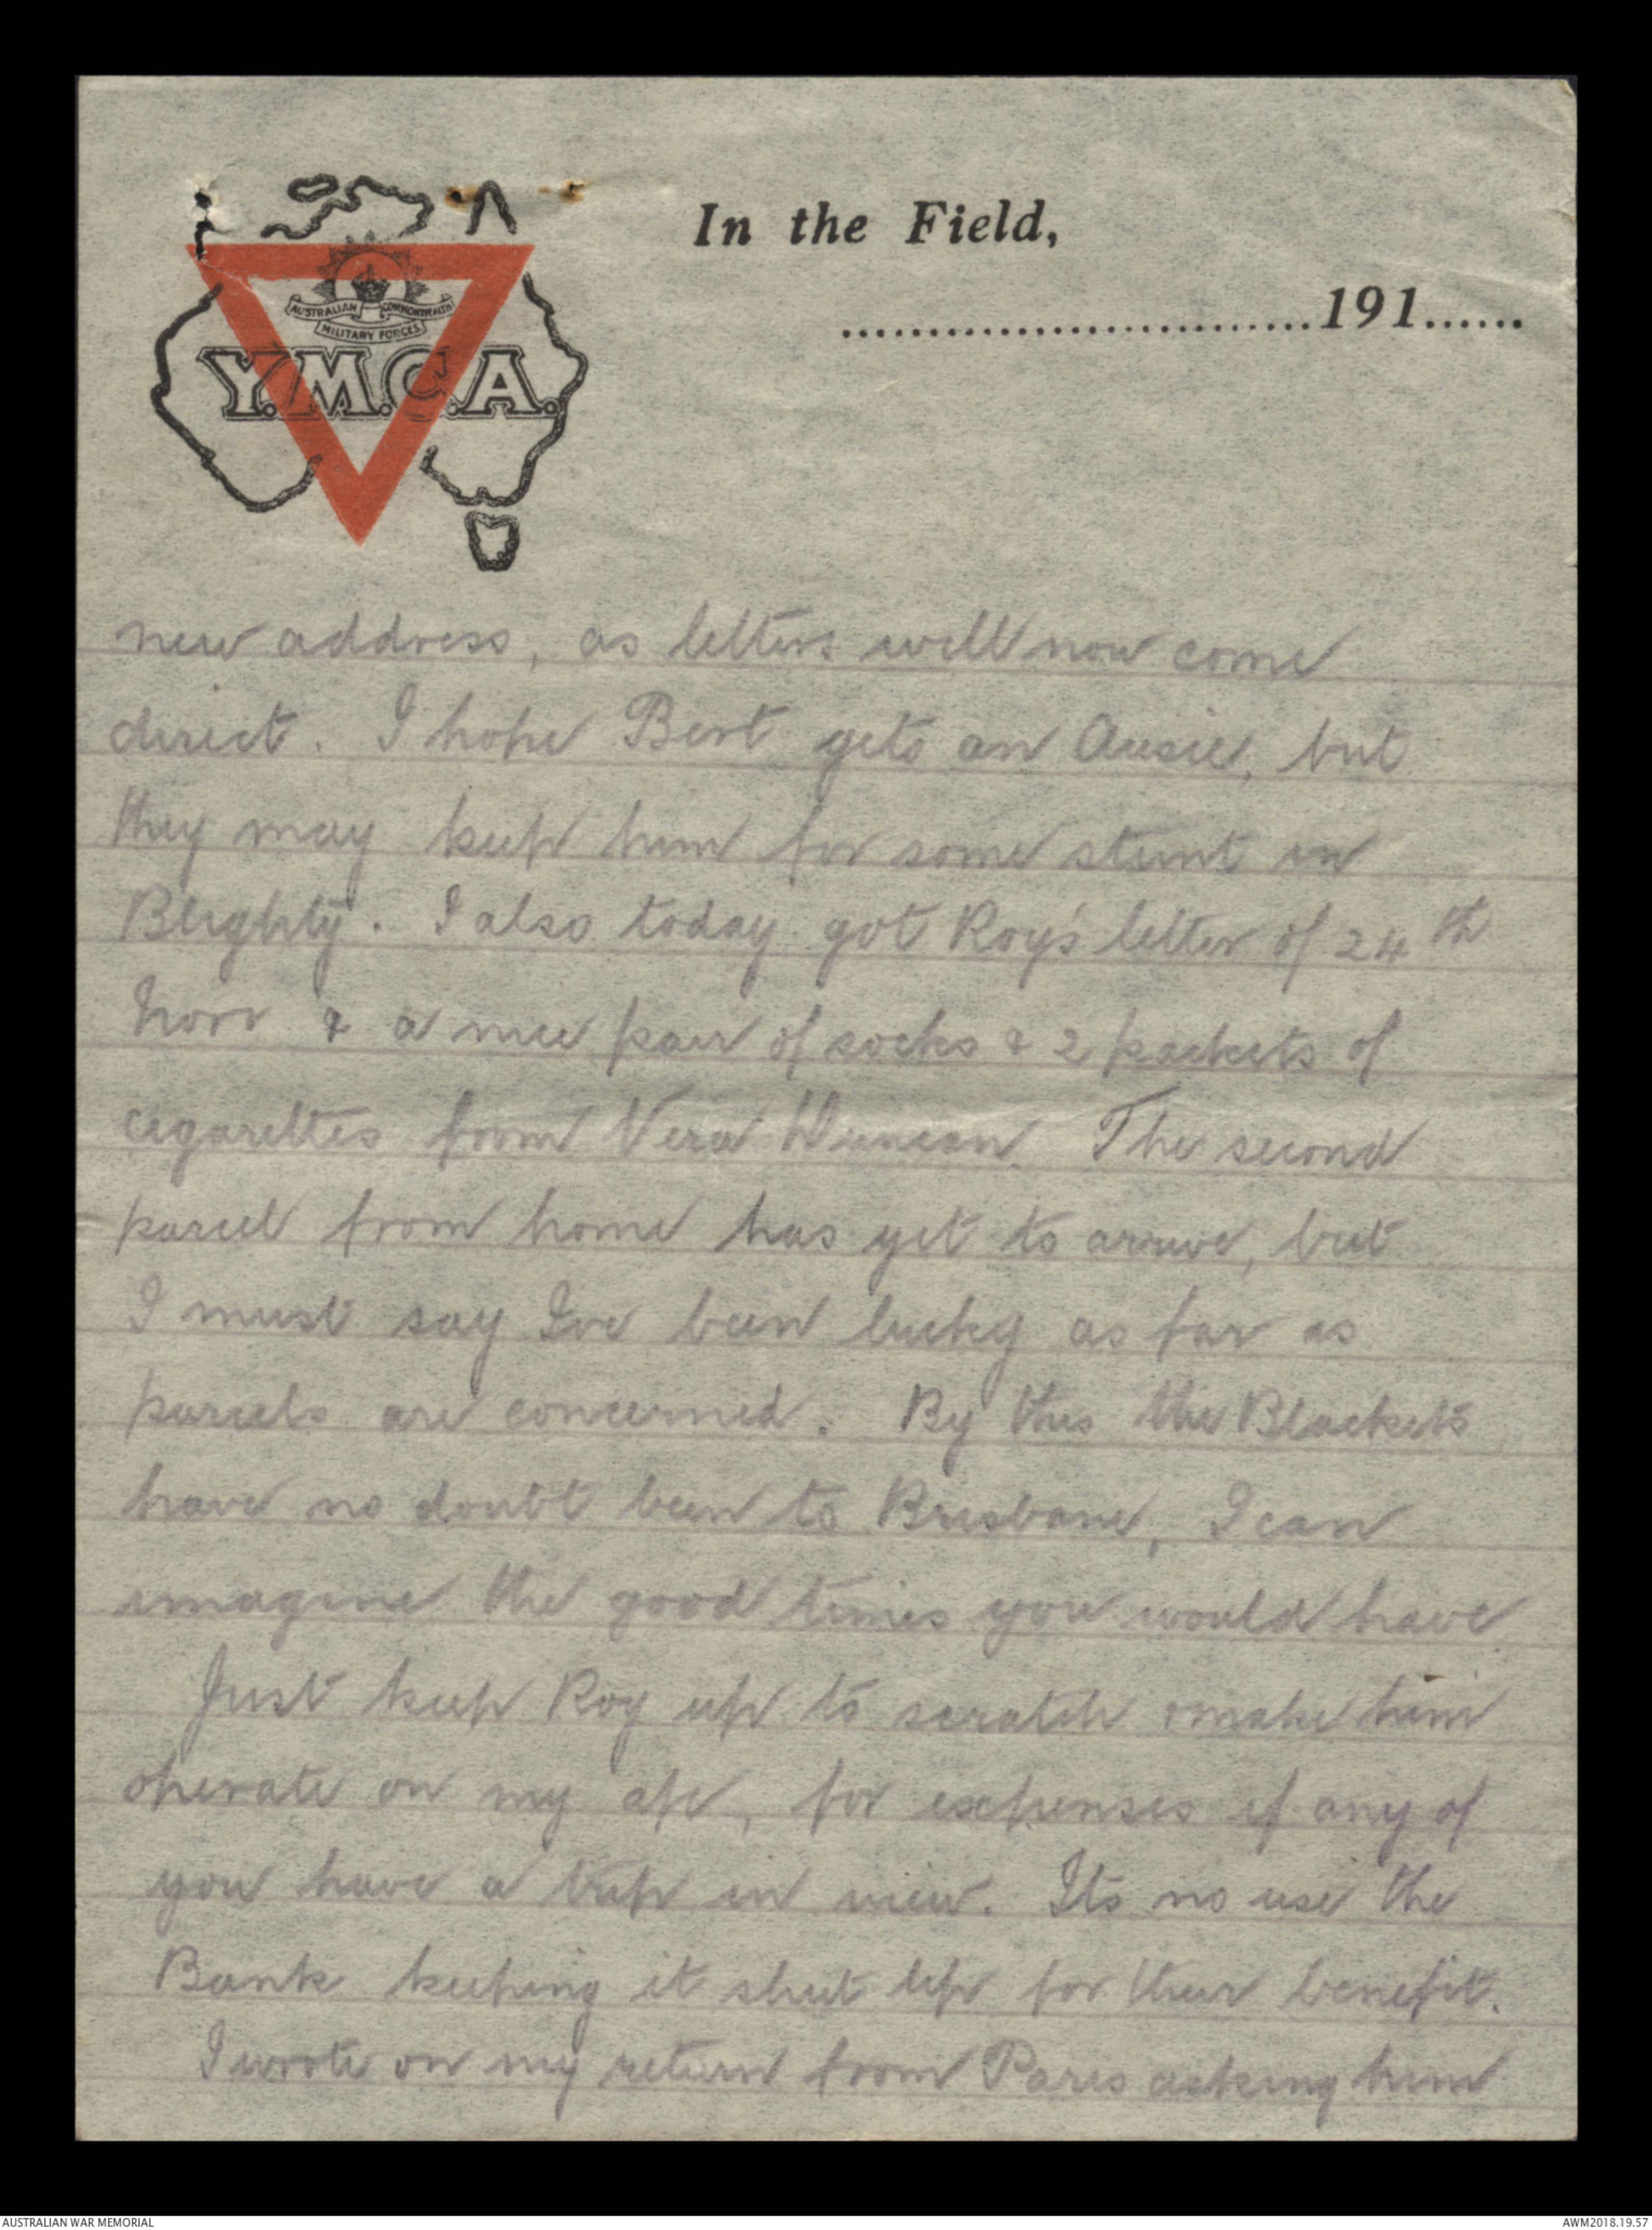 In the Field,
............................191......
AUSTRALIAN COMMONWEALTH
MILITARY FORCES
Y.M.C.A.
new address, as letters will now come
direct. I hope Bert gets an Ausie, but
they may keep him for some stunt in
Blighty. I also today got Roy's letter of 24th
Novr & a nice pair of socks & 2 packets of
cigarettes from Vera Duncan. The second
parcel from home has yet to arrive, but
I must say Ive been lucky as far as
parcels are concerned. By this the Blackets
have no doubt been to Brisbane, I can
imagine the good times you would have
Just keep Roy up to scratch & make him
operate on my a/c, for expenses if any of
you have a trip in view. Its no use the
Bank keeping it shut up for their benefit.
I wrote on my return from Paris asking him
AUSTRALIAN WAR MEMORIAL
AWM2018.19.57